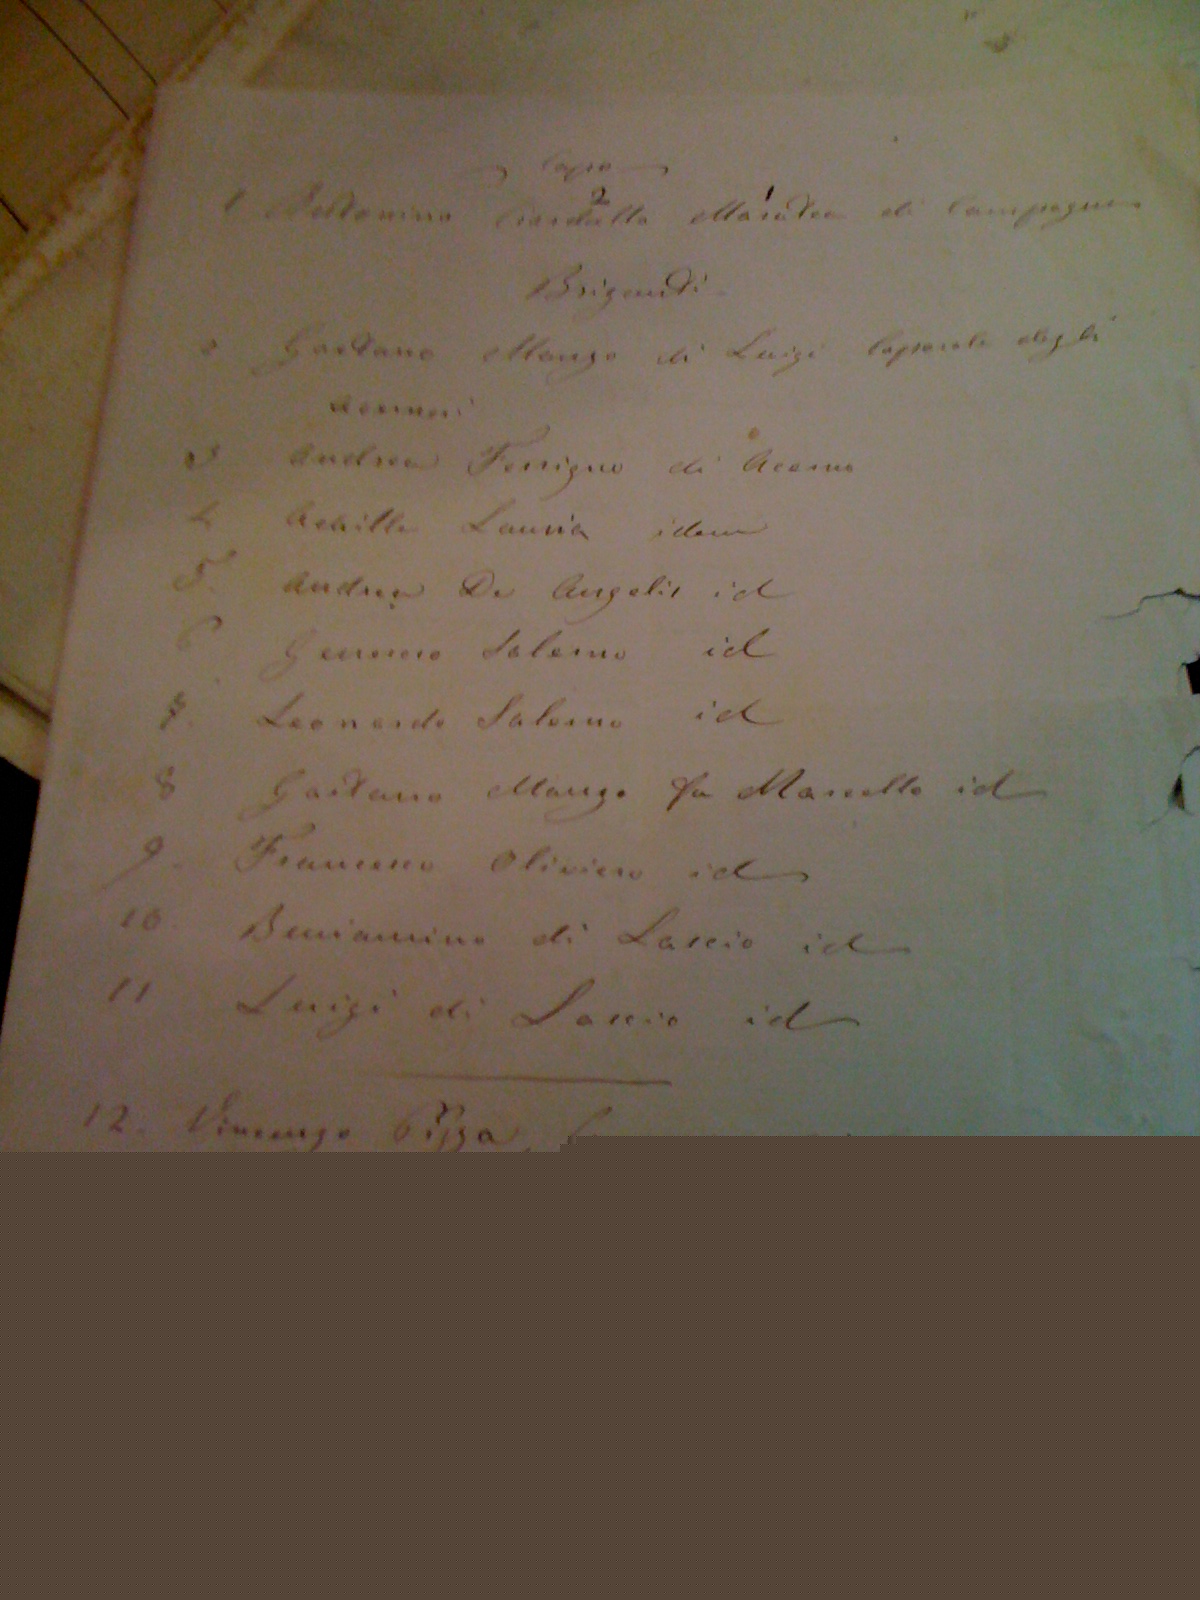 Capo
2 1
1 Bottonino Ciardullo Maratea di Campagna
Briganti
2 Gaetano Manzo di Luigi Caporale degli
Acernesi
3 Andrea Ferrigno di Acerno
4 Achille Lauria idem
5. Andrea De Angelis id
6 Gennaro Salerno id
7. Leonardo Salerno id
8 Gaetano Manzo fu Marcello id
9. Francesco Oliviero id
10. Beniamino di Lascio id
11 Luigi di Lascio id
12. Vincenzo Pizza